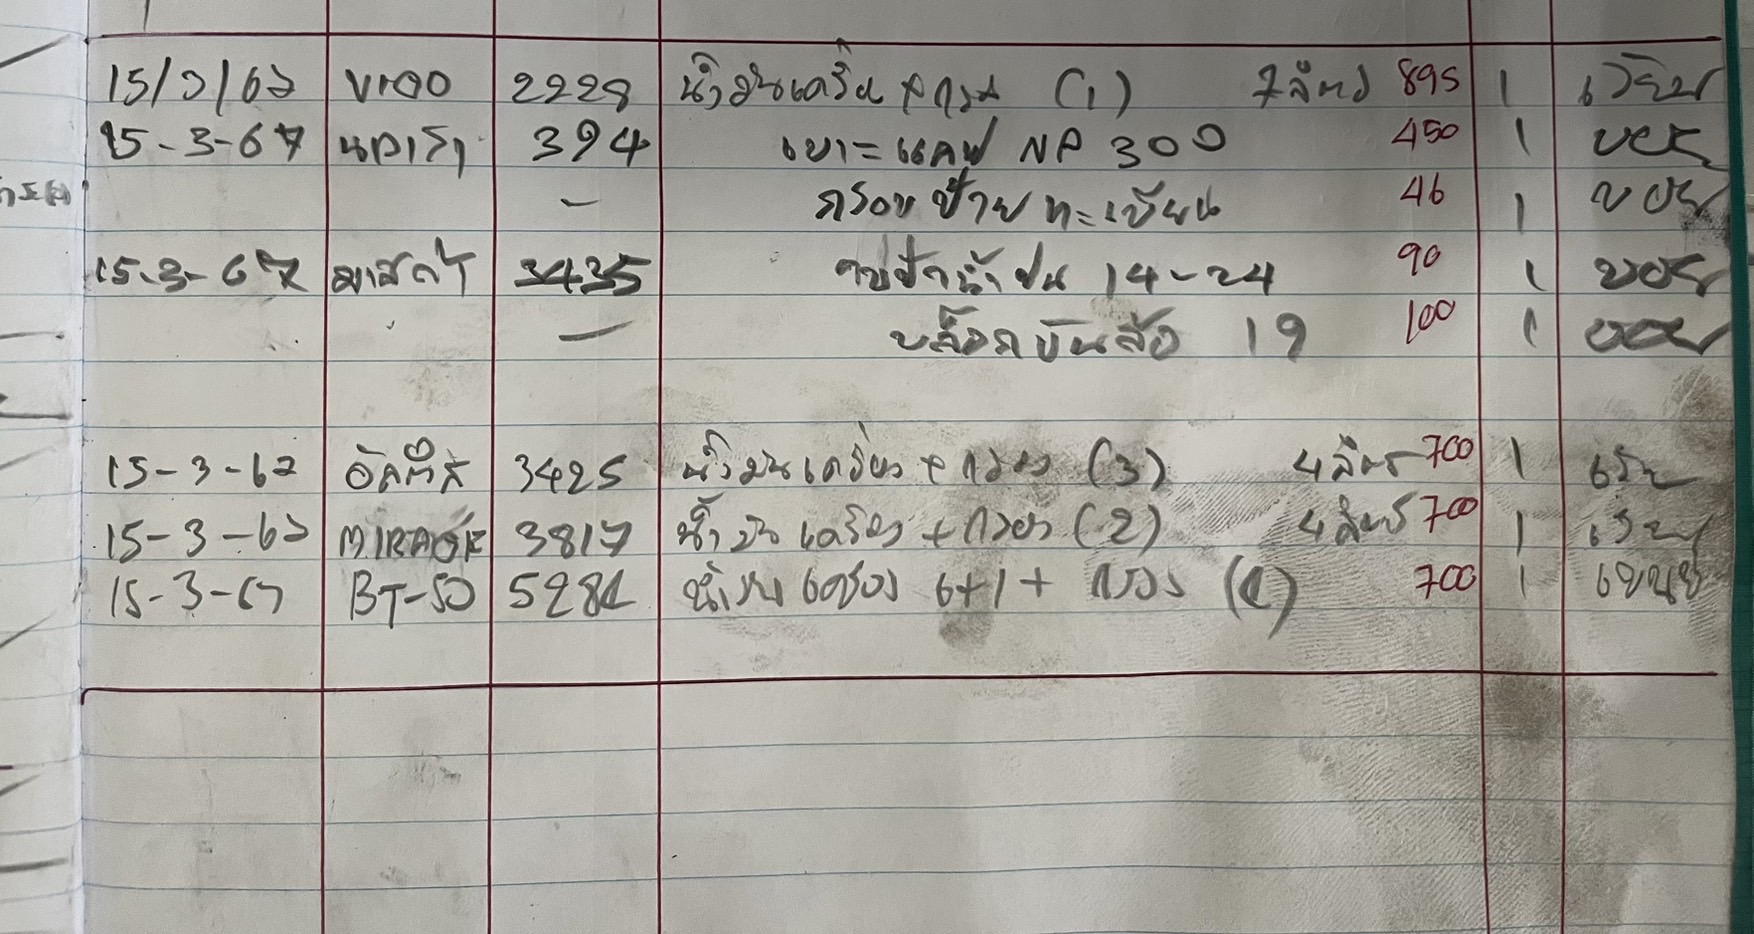 15/3/67 VIGO 2228 น้ำมันเครื่อง+กรอง (1) 7ลิตร 895 1
15-3-67 394 เบาะแคป NP 300 450 1 บอย
— กรอบป้ายทะเบียน 46 1 บอย
15-3-67 มาสด้า 3435 14-24 90 1 บอย
— บล็อกขันล้อ 19 100 1 บอย
15-3-67 3425 น้ำมันเครื่อง+กรอง (3) 4ลิตร 700 1
15-3-67 MIRAGE 3817 น้ำมันเครื่อง+กรอง (2) 4ลิตร 700 1
15-3-67 BT-50 น้ำมันเครื่อง 6+1+กรอง 700 1